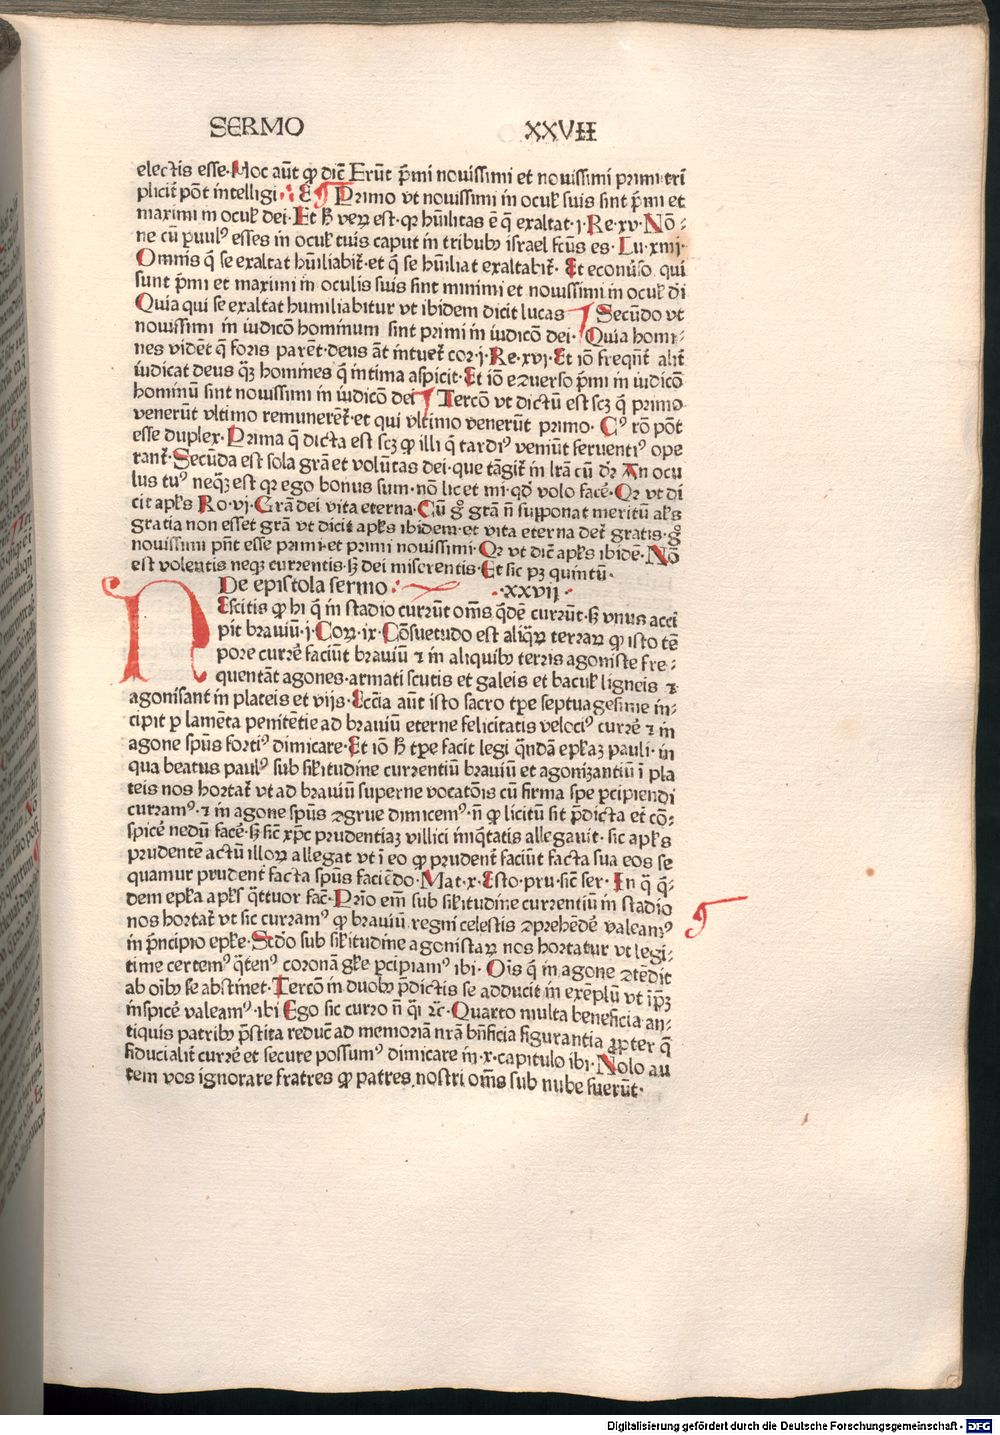 SERMO XXVII
electis esse. Hoc aūt ꝙ dic̄ Erūt p̄mi nouissimi et nouissimi primi tri
plicit̄ pōt intelligi. E ¶ Primo vt nouissimi in ocul̄ suis sint p̄mi et
maximi in ocul̄ dei. Et hͦ verꝝ est. qꝛ hūilitas ē q̄ exaltat. j. Re. xv. Nō-
ne cū ꝑuulꝰ esses in ocul̄ tuis caput in tribubꝫ israel fctūs es. Lu. xiiij.
Omnis q̄ se exaltat hūiliabit̄. et q̄ se hūiliat exaltabit̄. Et econūso qui
sunt p̄mi et maximi in oculis suis sint minimi et nouissimi in ocul̄ dī
Quia qui se exaltat humiliabitur vt ibidem dicit lucas ¶ Secūdo vt
nouissimi in iudicō hominum sint primi in iudicō dei. Quia homi-
nes vidēt q̄ foris parēt. deus āt intuet̄ cor. j. Re. xvj. Et iō freqn̄t alit̄
iudicat deus qͣꝫ homines q̄ intima aspicit. Et iō eꝯuerso p̄mi in iudicō
hominū sint nouissimi in iudicō dei ¶ Tercō vt dictū est scꝫ q̄ primo
venerūt vltimo remunerēt̄. et qui vltimo venerūt primo. Cꝰ rō pōt
esse duplex. Prima q̄ dicta est scꝫ ꝙ illi q̄ tardiꝰ veniūt feruentiꝰ ope
rant̄. Secūda est sola grā et volūtas dei. que tāgit̄ in lrā cū dr̄ An ocu
lus tuꝰ neqͣꝫ est qꝛ ego bonus sum. nō licet mi. qd̄ volo facē. Qꝛ vt di
cit apl̄s Ro. vj. Grā dei vita eterna. Cū gͦ grā n̄ supponat meritū al̄s
gratia non esset grā vt dicit apl̄s ibidem. et vita eterna det̄ gratis. gͦ
nouissimi pn̄t esse primi. et primi nouissimi. Qꝛ vt dic̄ apl̄s ibidē. Nō
est volentis neqꝫ currentis. sꝫ dei miserentis. Et sic pꝫ quintū.
De epistola sermo .xxvij.
NEscitis ꝙ hi q̄ in stadio currūt om̄s qͥdē currūt. sꝫ vnus acci
pit brauiū. j. Corꝝ. ix. Cōsuetudo est aliqͣꝝ terraꝝ ꝙ isto tē
pore currē faciūt brauiū ⁊ in aliquibꝫ terris agoniste fre-
quentāt agones. armati scutis et galeis et bacul̄ ligneis ⁊
agonisant in plateis et vijs. Ecc̄ia aūt isto sacro tp̄e septuagesime in-
cipit ꝑ lamēta penitētie ad brauiū eterne felicitatis velociꝰ currē ⁊ in
agone spūs fortiꝰ dimicare. Et iō hͦ tp̄e facit legi qͣndā epl̄aꝫ pauli. in
qua beatus paulꝰ sub sil̄itudine currentiū brauiū et agonizantiū ī pla
teis nos hortat̄ vt ad brauiū superne vocatōis cū firma spe ꝑcipiendi
curramꝰ. ⁊ in agone spūs ꝯgrue dimicemꝰ. n̄ ꝙ licitū sit p̄dicta et cō-
spicē nedū facē. sꝫ sic̄ xp̄c prudentiaꝫ villici iniqͥtatis allegauit. sic apl̄s
prudentē actū illoꝝ allegat vt ī eo ꝙ prudent̄ faciūt facta sua eos se
quamur prudent̄ facta spūs faciēdo. Mat. x. Esto. pru. sic̄ ser. In qͣ qͥ-
dem epl̄a apl̄s qͣttuor fac̄. Prīo em̄ sub sil̄itudine currentiū in stadio
nos hortat̄ vt sic curramꝰ ꝙ brauiū regni celestis ꝯprehēdē valeamꝰ
in p̄ncipio epl̄e. Scd̄o sub sil̄itudine agonistaꝝ nos hortatur vt legi-
time certemꝰ qͣtenꝰ coronā gl̄e ꝑcipiamꝰ ibi. Oīs q̄ in agone ꝯtēdit
ab oībꝫ se abstinet. Tercō in duobꝫ p̄dictis se adducit in exēplū vt ip̄ꝫ
inspicē valeamꝰ. ibi Ego sic curro n̄ qͣi ⁊c̄. Quarto multa beneficia an-
tiquis patribꝫ p̄stita reduc̄ ad memoriā nrā bn̄ficia figurantia ꝓpter q̄
fiducialit̄ currē et secure possumꝰ dimicare in. x. capitulo ibi. Nolo au
tem vos ignorare fratres ꝙ patres nostri om̄s sub nube fuerūt.
Digitalisierung gefördert durch die Deutsche Forschungsgemeinschaft - DFG